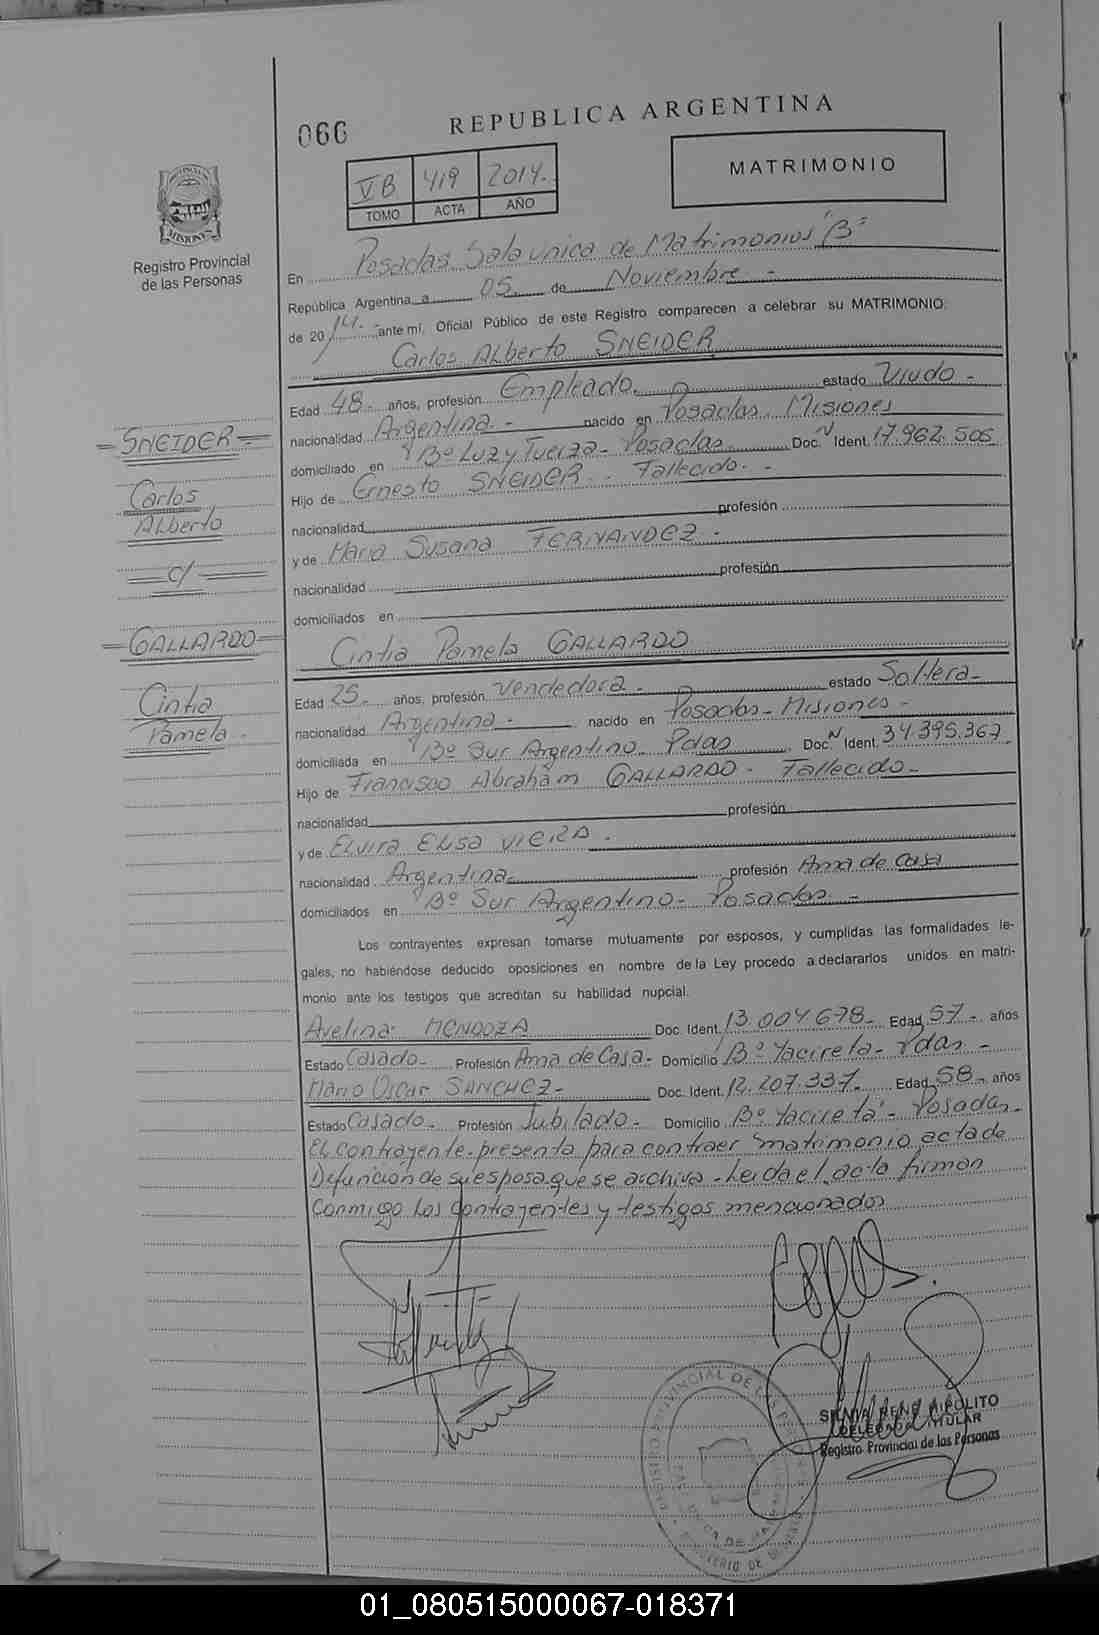 066
REPUBLICA ARGENTINA
VB 419 2014.-
TOMO ACTA AÑO
MATRIMONIO
Registro Provincial
de las Personas
En Posadas Sala Unica de Matrimonios "B"
República Argentina a 05 de Noviembre -
de 2014.- ante mí, Oficial Público de este Registro comparecen a celebrar su MATRIMONIO:
Carlos Alberto SNEIDER
Edad 48- años, profesión Empleado. estado Viudo -
nacionalidad Argentina - nacido en Posadas. Misiones
domiciliado en Bº Luz y Fuerza - Posadas Doc. N Ident. 17.962.505
Hijo de Ernesto SNEIDER - Fallecido. -
nacionalidad profesión
y de Maria Susana FERNANDEZ -
nacionalidad profesión
domiciliados en
Cintia Pamela GALLARDO
Edad 25- años, profesión Vendedora - estado Soltera-
nacionalidad Argentina - nacido en Posadas - Misiones -
domiciliada en Bº Sur Argentino. Pdas Doc. N Ident. 34.395.367
Hijo de Francisco Abraham GALLARDO - Fallecido -
nacionalidad profesión
y de ELVIRA ELISA VIERA .
nacionalidad Argentina profesión Ama de Casa
domiciliados en Bº Sur Argentino - Posadas -
Los contrayentes expresan tomarse mutuamente por esposos, y cumplidas las formalidades le-
gales, no habiéndose deducido oposiciones en nombre de la Ley procedo a declararlos unidos en matri-
monio ante los testigos que acreditan su habilidad nupcial.
Avelina MENDOZA Doc. Ident. 13.004.678- Edad 57- años
Estado Casado- Profesión Ama de Casa- Domicilio Bº Yacireta - Pdas -
Mario Oscar SANCHEZ- Doc. Ident. 12.207.337- Edad 58- años
Estado Casado- Profesión Jubilado- Domicilio Bº Yacireta - Posadas -
El contrayente presenta para contraer matrimonio acta de
Defuncion de su esposa que se archiva - Leida el acta firman
Conmigo Los contrayentes y testigos mencionados
= SNEIDER =
Carlos
Alberto
= c/ =
= GALLARDO =
Cintia
Pamela -
SILVIA RENE HIPOLITO
DELEGADA TITULAR
Registro Provincial de las Personas
01_080515000067-018371